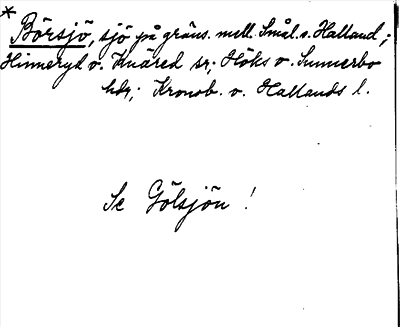 * Börsjö, sjö på gräns. mell. Smål. o. Halland;
Hinneryd o. Knäred sr; Höks o. Sunnerbo
hdr; Kronob. o. Hallands l.
Se Gölsjön!